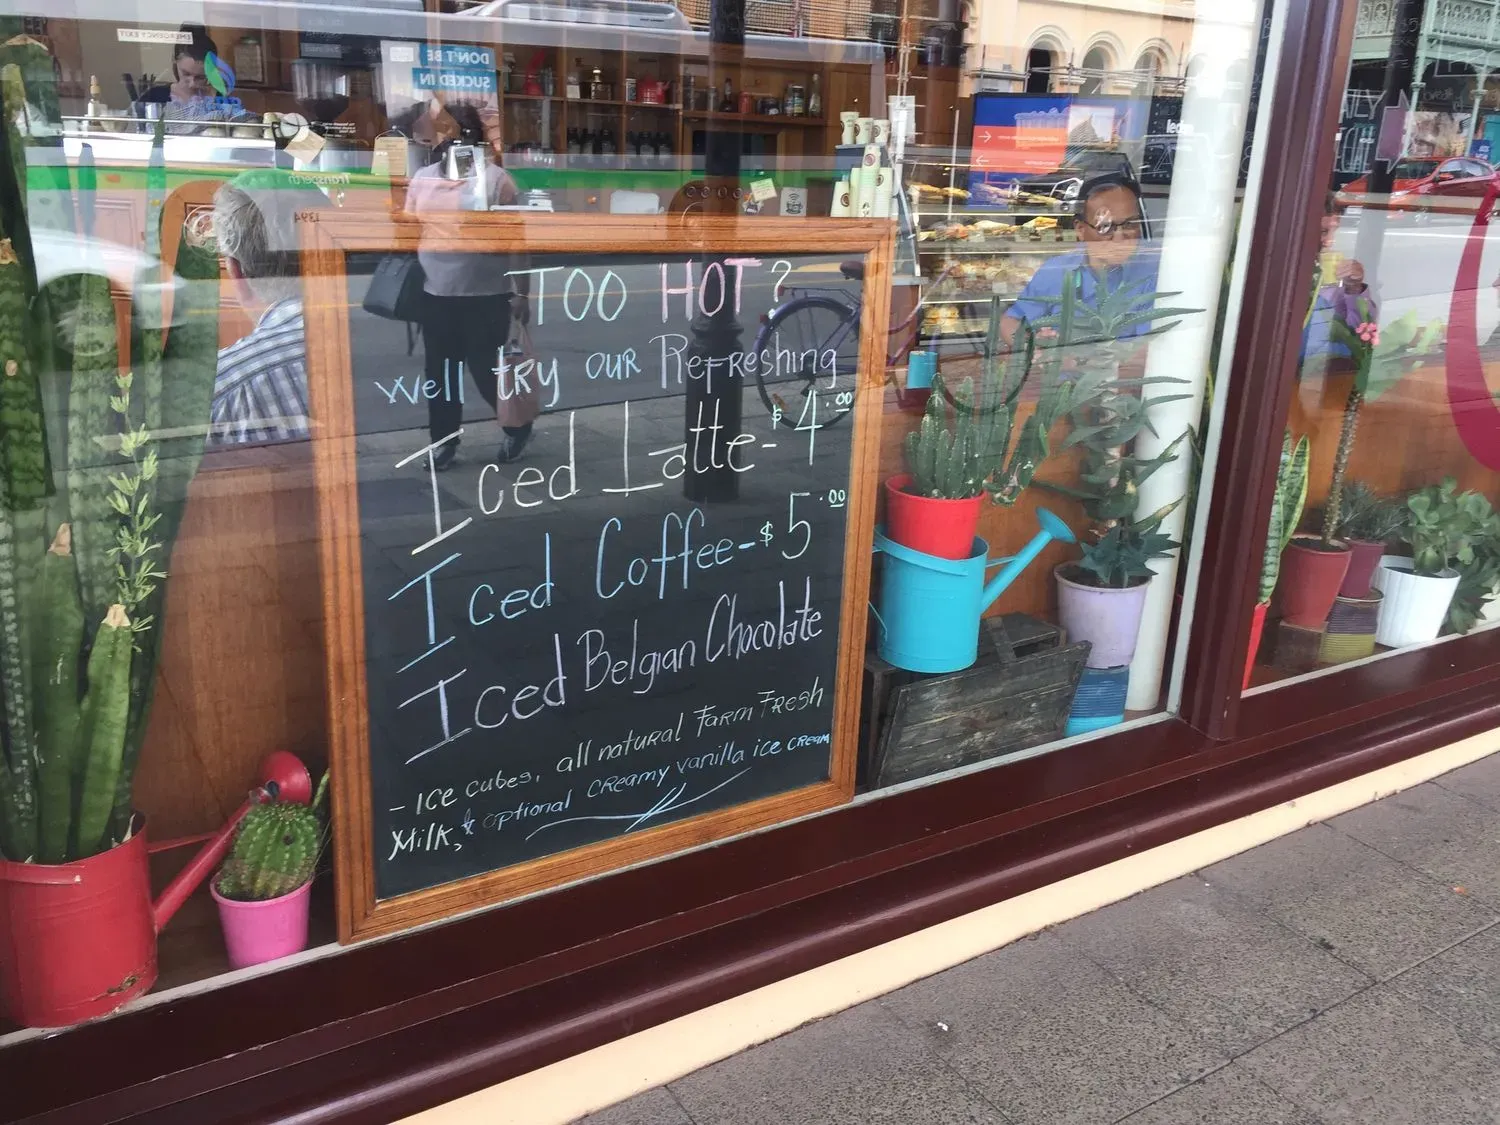 EMERGENCY EXIT
DON'T BE
SUCKED IN
Transperth
1394
TOO HOT?
Well try our Refreshing
Iced Latte - $4.00
Iced Coffee - $5.00
Iced Belgian Chocolate
- Ice cubes, all natural Farm Fresh
Milk, & optional creamy vanilla ice cream